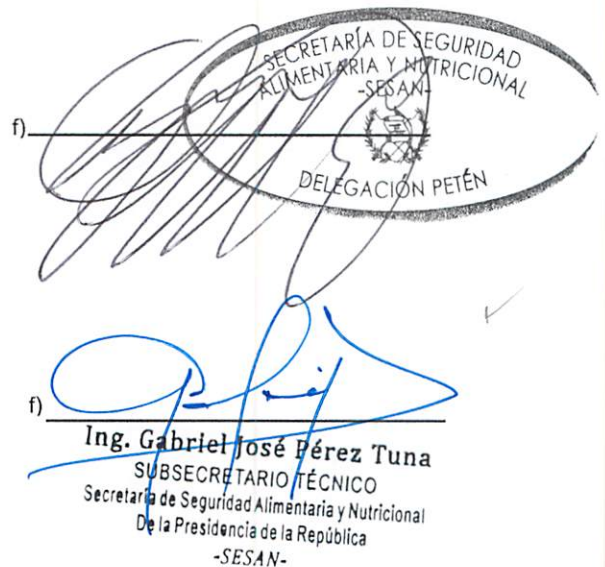 SECRETARÍA DE SEGURIDAD
ALIMENTARIA Y NUTRICIONAL
-SESAN-
f)
DELEGACIÓN PETÉN
f)
Ing. Gabriel José Pérez Tuna
SUBSECRETARIO TÉCNICO
Secretaría de Seguridad Alimentaria y Nutricional
De la Presidencia de la República
-SESAN-